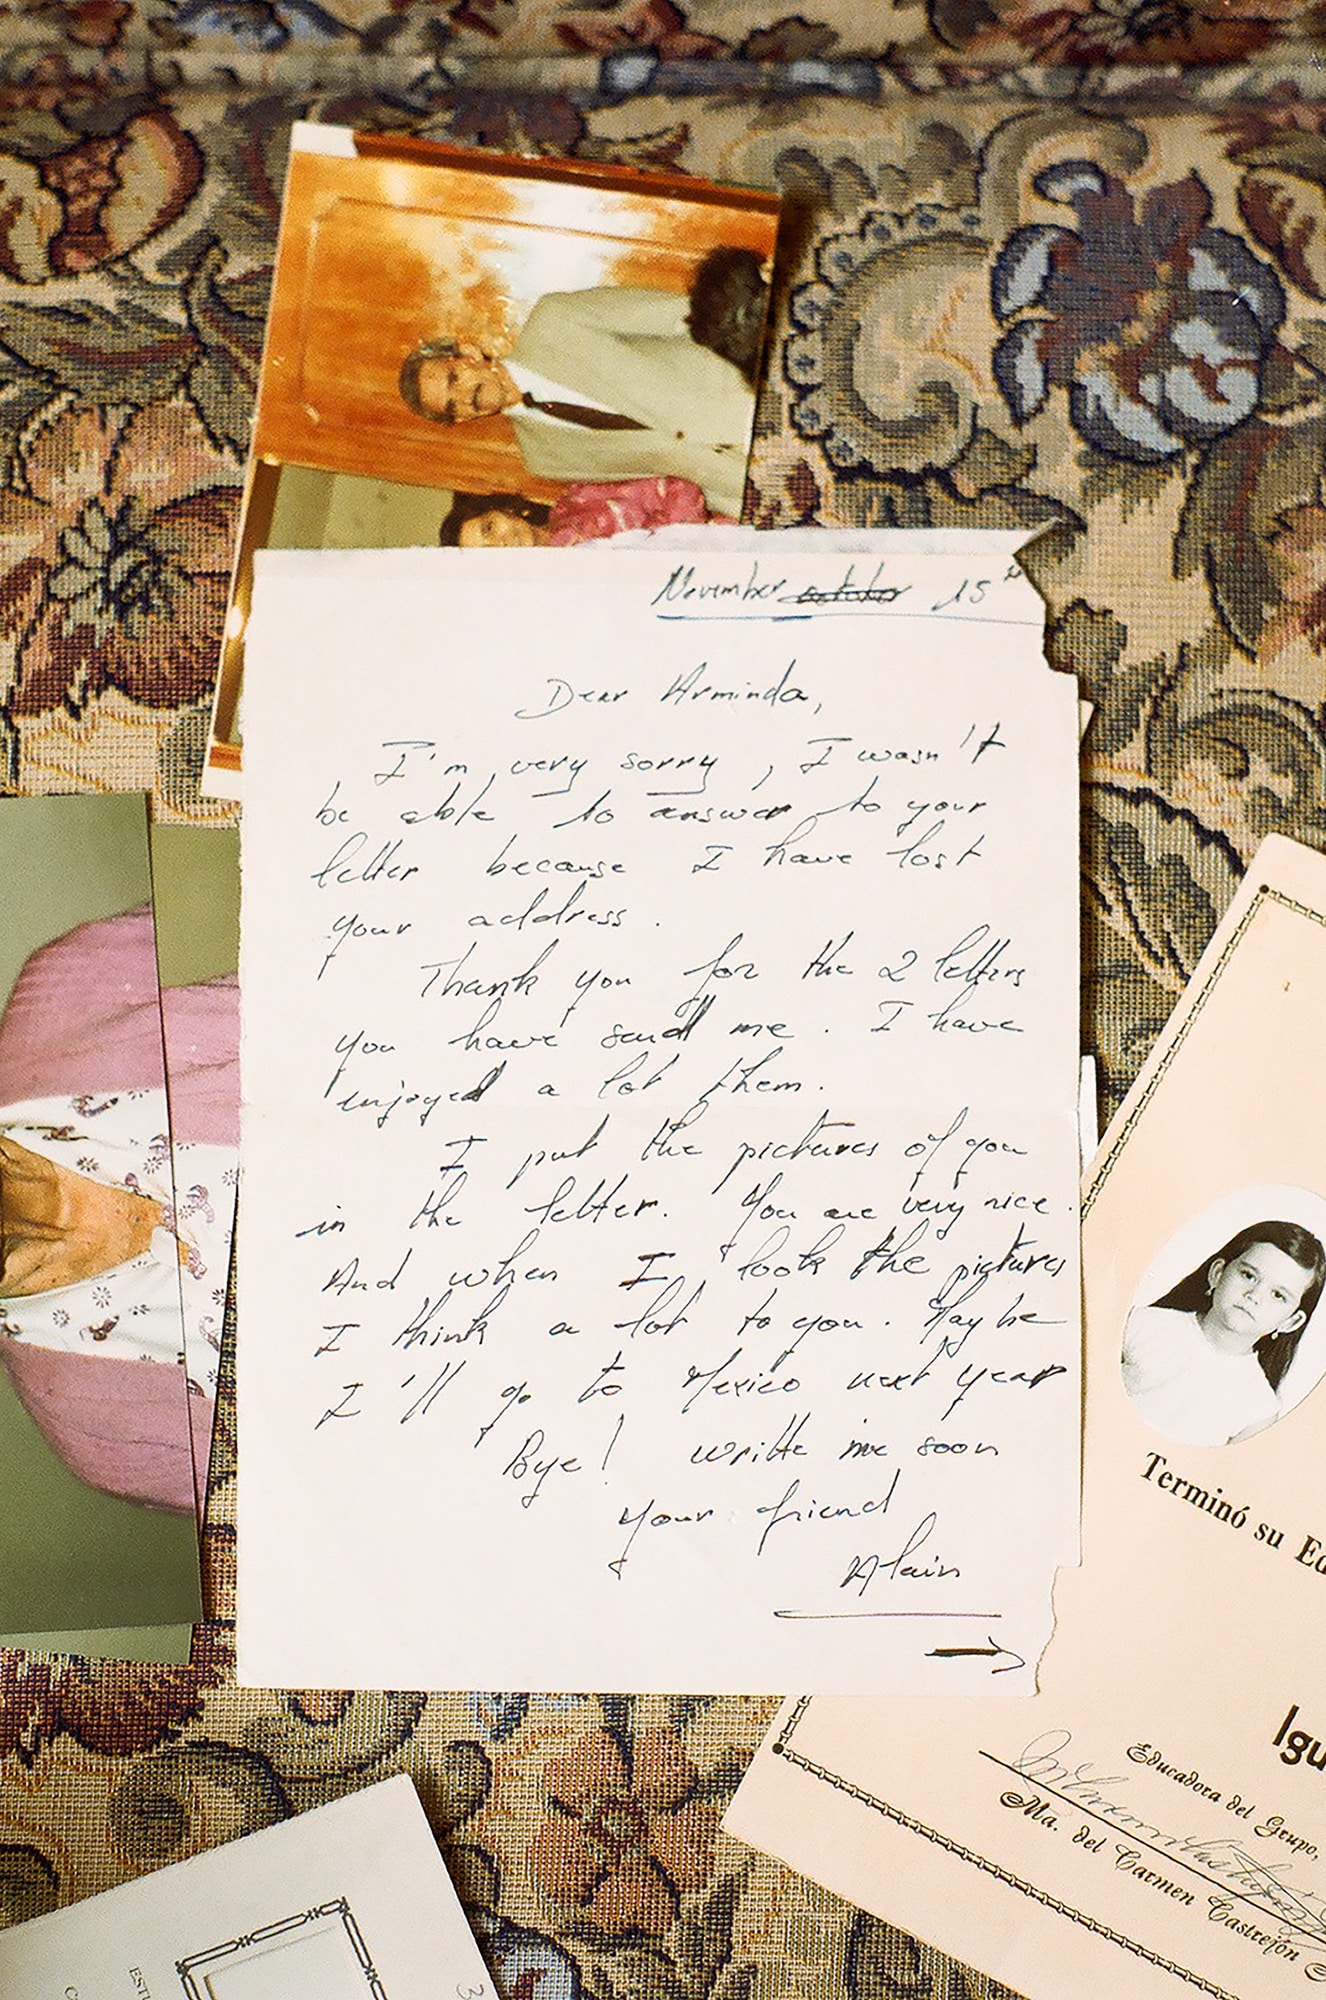 November october 15th
Dear Arminda,
I'm very sorry, I wasn't
be able to answer to your
letter because I have lost
your address.
Thank you for the 2 letters
you have send me. I have
enjoyed a lot them.
I put the pictures of you
in the letter. You are very nice.
And when I look the pictures
I think a lot to you. May be
I'll go to Mexico next year
Bye! writte me soon
your friend
Alain
Terminó su Ed
Igu
Educadora del Grupo,
Ma. del Carmen Castrejón
ESTU
3